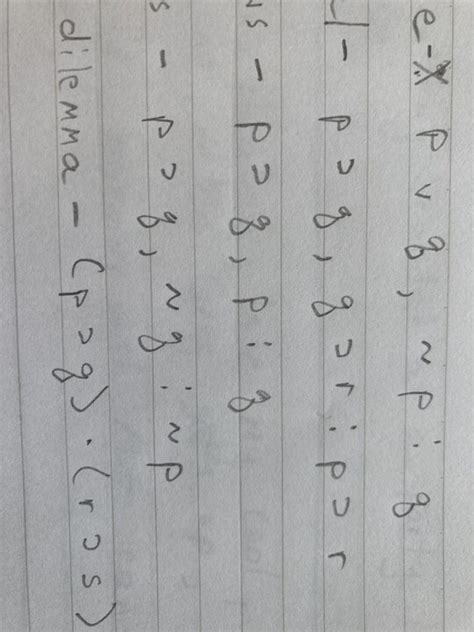 e - p v q, ~p ∴ q
l - p ⊃ q, q ⊃ r ∴ p ⊃ r
us - p ⊃ q, p ∴ q
s - p ⊃ q, ~q ∴ ~p
dilemma - (p ⊃ q) · (r ⊃ s)